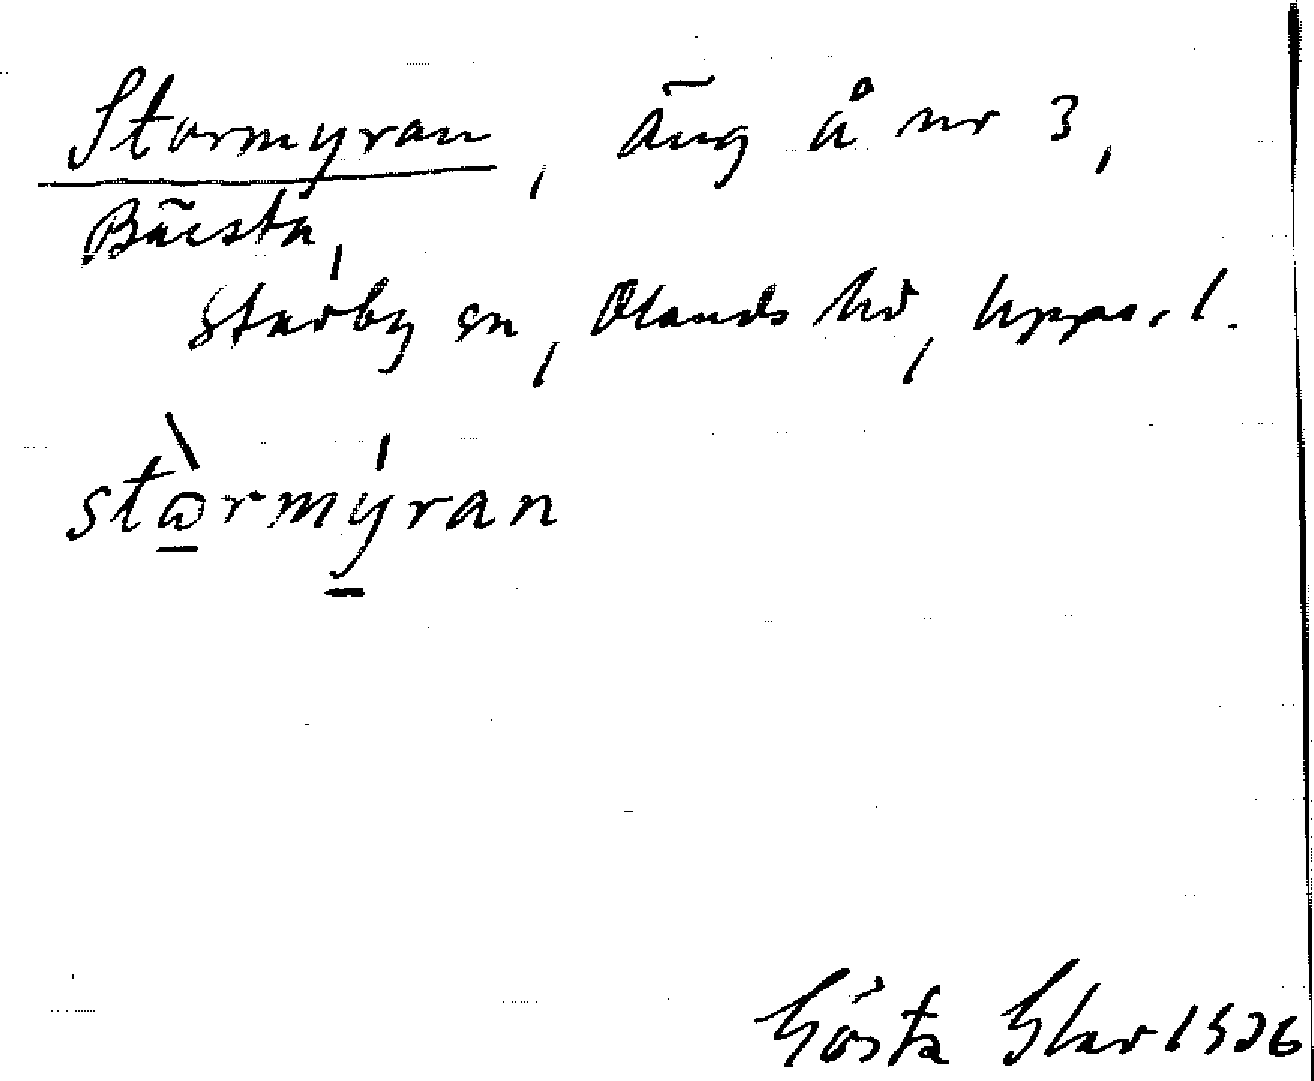 Stormyran, Äng å nr 3,
Bäcsta,
Starby sn, Olands hd, Uppsl.
stòrmýran
Gösta 1926